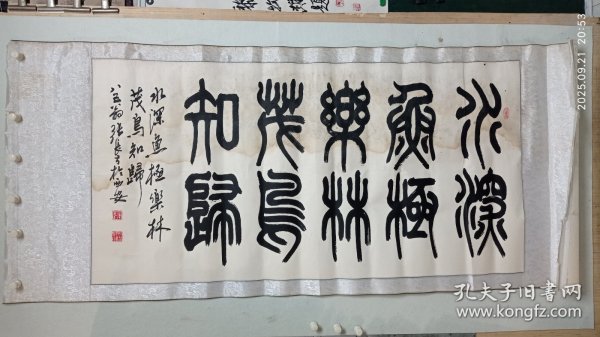 水深
魚極
樂林
茂鳥
知歸
水深魚極樂林
茂鳥知歸
於西安
2025.09.21 20:53
孔夫子旧书网
www.kongfz.com